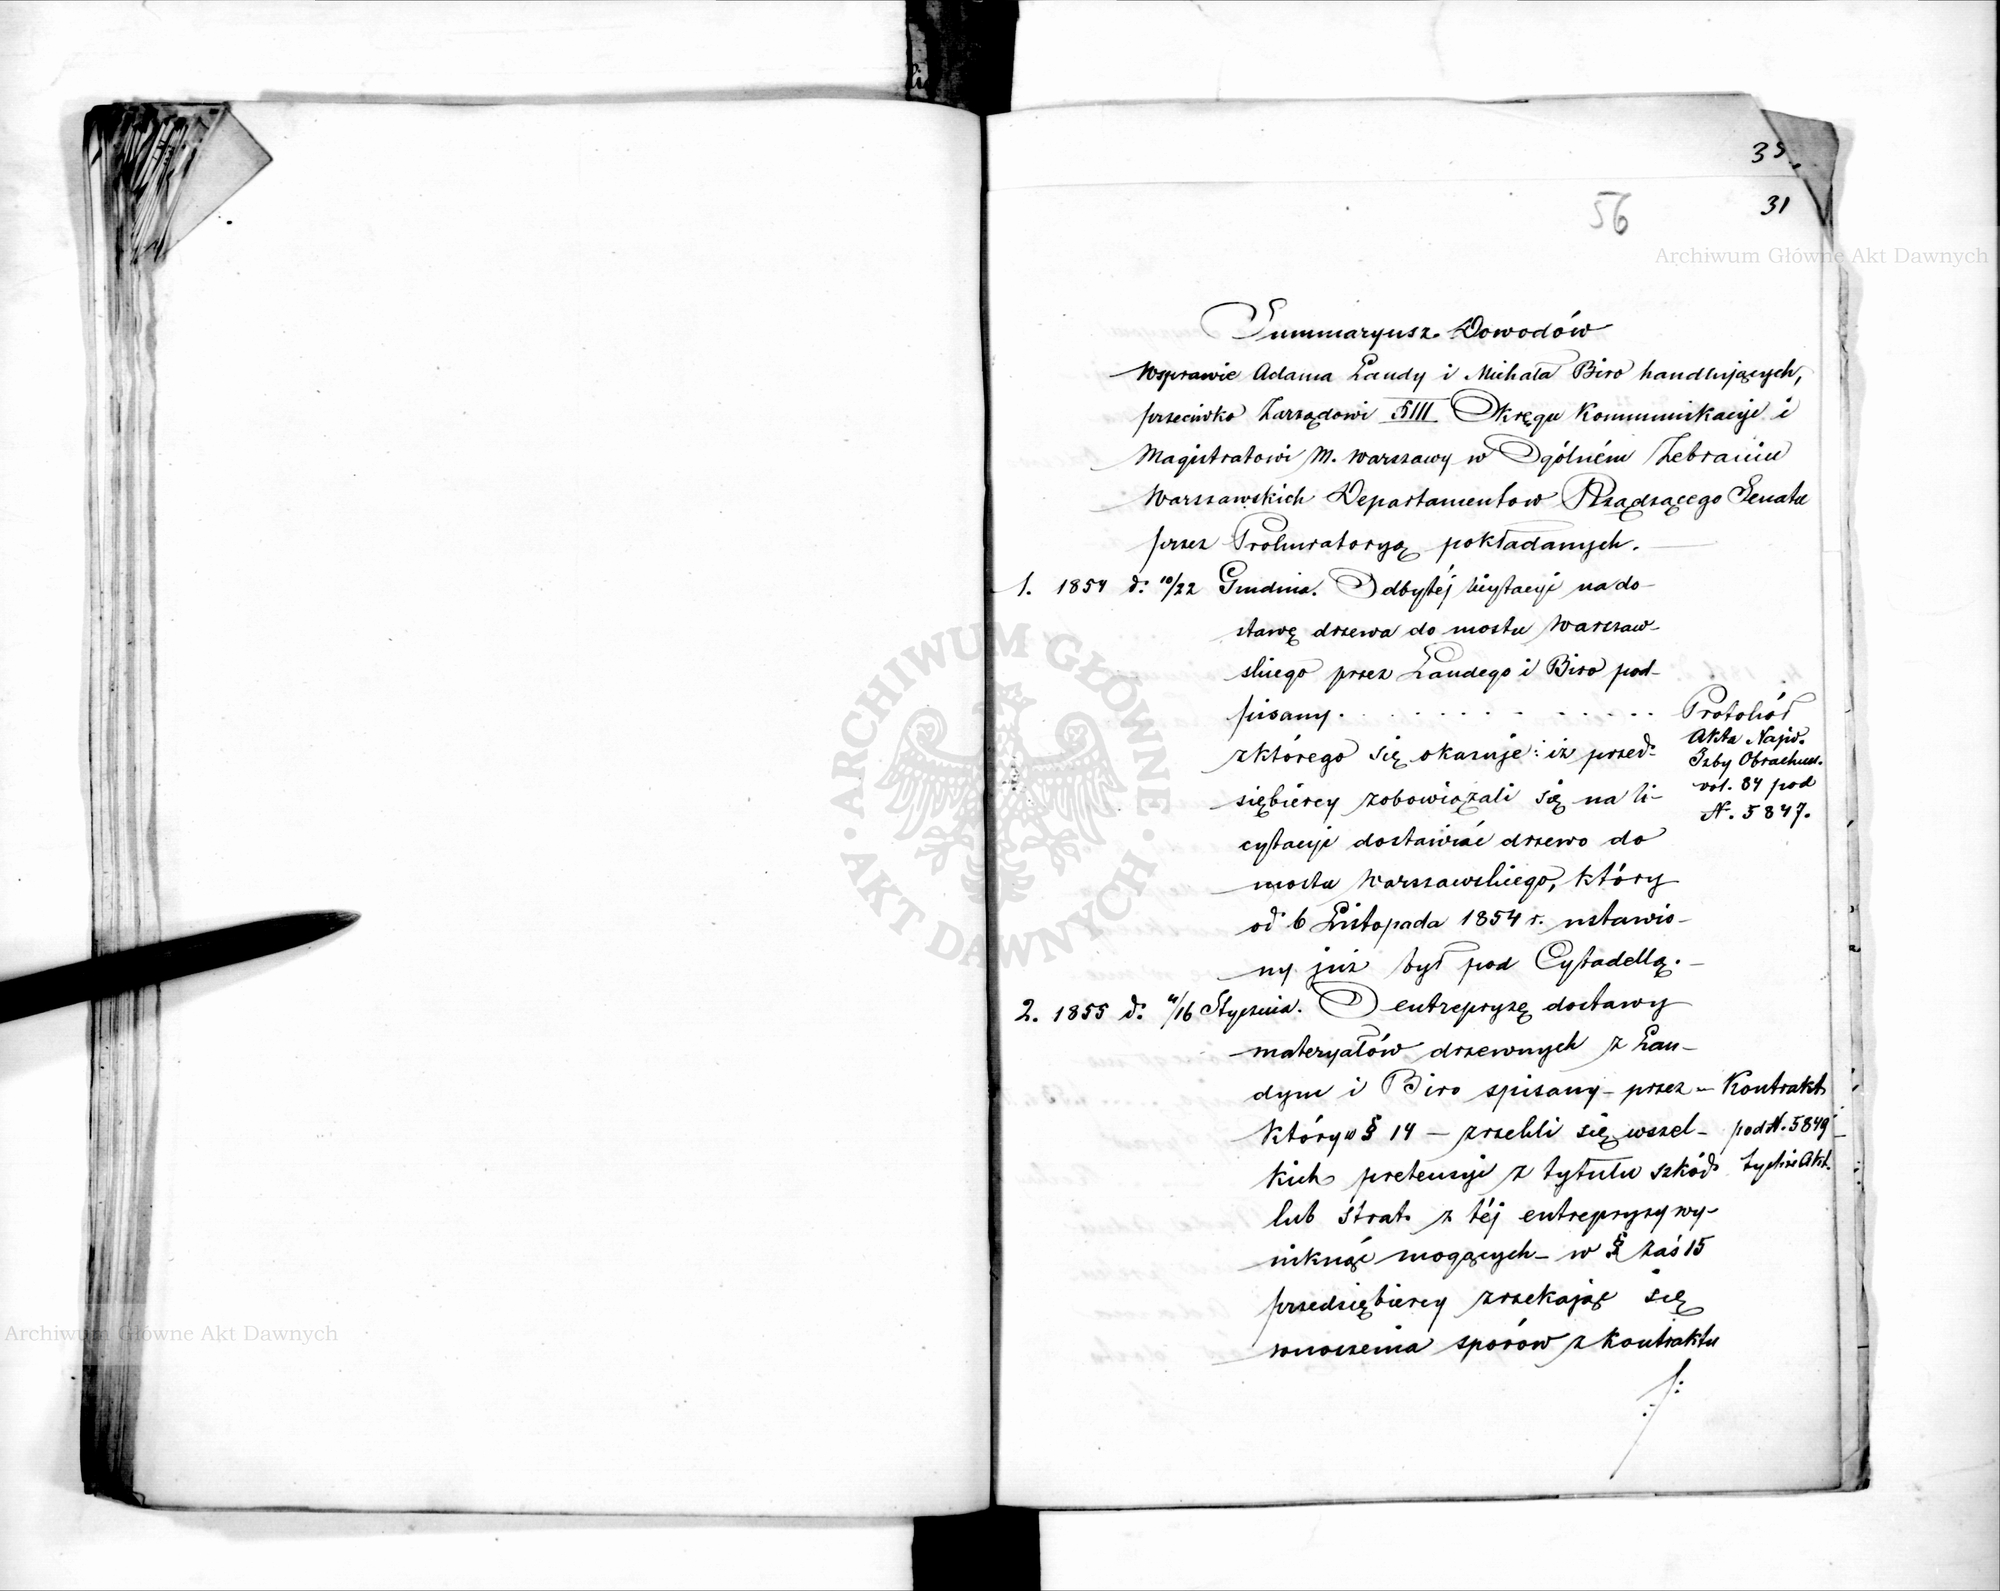 35.
56
31
Archiwum Główne Akt Dawnych
Summaryusz Dowodów
wsprawie Adama Laudy i Michała Biro handlujących,
przeciwko Zarządowi XIII Okręgu Kommunikacyi i
Magistratowi M. Warszawy w Ogólném Zebraniu
Warszawskich Departamentow Rządzącego Senatu
przez Prokuratoryą pokładanych.
1. 1854 d: 10/22 Grudnia. Odbytéj licytacyi na do-
stawę drzewa do mostu Warszaw-
skiego przez Laudego i Biro pod-
pisany . . . . . . . . . . . . Protokół
Akta Najw.
Izby Obrachun.
vol. 84 pod
N. 5847.
z którego się okazuje: iż przed-
siębiercy zobowiązali się na li-
cytacyi dostawiać drzewo do
mostu Warszawskiego, który
od 6 Listopada 1854 r. ustawio-
ny już był pod Cytadellą. -
2. 1855 d: 4/16 Stycznia. O entrepryzę dostawy
materyałów drzewnych z Lau-
dym i Biro spisany - przez - Kontrakt
który w § 14 - zrzekli się wszel- pod N. 5849
kich pretensyi z tytułu szkód tychże Akt.
lub strat z téj entrepryzy wy-
niknąć mogących - w § zaś 15
przedsiębiercy zrzekając się
wnoszenia sporów z kontraktu
ARCHIWUM GŁÓWNE AKT DAWNYCH
Archiwum Główne Akt Dawnych